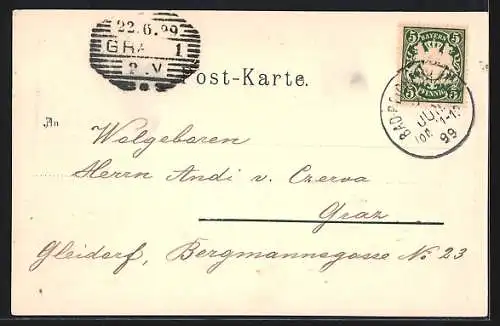 22.6.99
GRA 1
Post-Karte.
BAYERN
5 5
5 PFENNIG 5
JUN
99
An
Wolgeboren
Herrn Andi v. Czerva
Graz
Gleidorf, Bergmannsgasse No 23